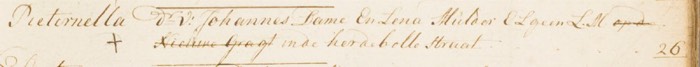 Pieternella d. v. Johannes Dame En Lena Mulder C. L. M. op de
+ Nieuwe Gragt in de herdebolle Straat. 26